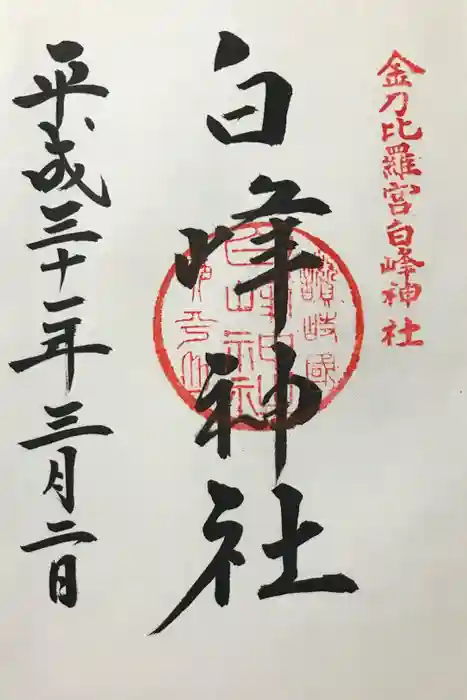 金刀比羅宮白峰神社
白峰神社
讃岐國
白峰神社
平成三十一年三月二日